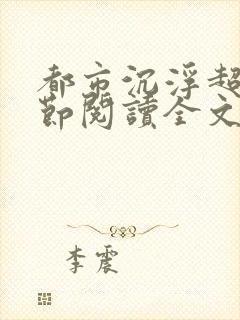 都市沉浮超
節閱讀全文
李震